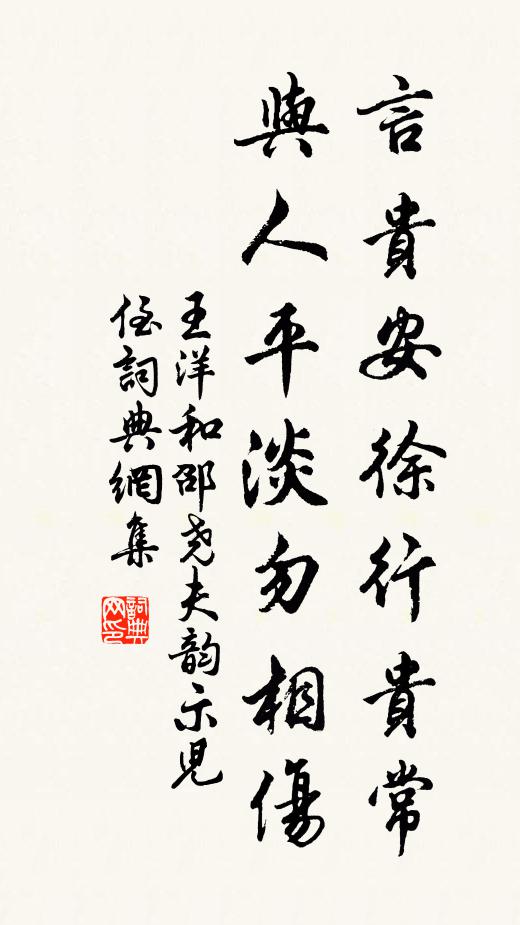 言貴安徐行貴常
與人平淡勿相傷
王洋和邵尧夫韵示児
侄詞典網集
詞典网印